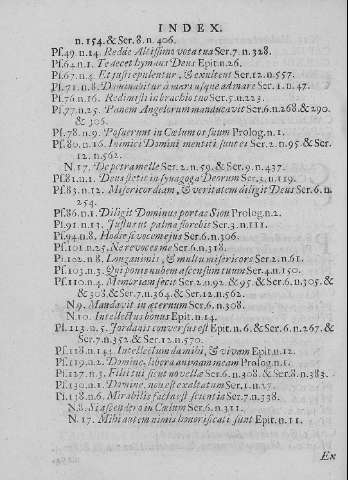 INDEX.
n. 154. & Ser. 8. n. 406.
Ps. 49. n. 14. Redde Altissimo vota tua Ser. 7. n. 328.
Ps. 64. n. 1. Te decet hymnus Deus Epit. n. 26.
Ps. 67. n. 4. Et justi epulentur, & exultent Ser. 12. n. 557.
Ps. 71. n. 8. Dominabitur à mari usque ad mare Ser. 1. n. 47.
Ps. 76. n. 16. Redimisti in brachio tuo Ser. 5. n. 223.
Ps. 77. n. 25. Panem Angelorum manducavit Ser. 6. n. 268. & 290.
& 306.
Ps. 78. n. 9. Posuerunt in Cœlum os suum Prolog. n. 1.
Ps. 80. n. 16. Inimici Domini mentiti sunt ei Ser. 2. n. 95. & Ser.
12. n. 562.
N. 17. De petra melle Ser. 2. n. 59. & Ser. 9. n. 437.
Ps. 81. n. 1. Deus stetit in synagoga Deorum Ser. 3. n. 119.
Ps. 83. n. 12. Misericordiam, & veritatem diligit Deus Ser. 6. n.
254.
Ps. 86. n. 1. Diligit Dominus portas Sion Prolog. n. 2.
Ps. 91. n. 13. Justus ut palma florebit Ser. 3. n. 111.
Ps. 94. n. 8. Hodie si vocem ejus Ser. 6. n. 306.
Ps. 101. n. 25. Ne revoces me Ser. 6. n. 318.
Ps. 102. n. 8. Longanimis, & multum misericors Ser. 2. n. 61.
Ps. 103. n. 3. Qui ponis nubem ascensum tuum Ser. 4. n. 150.
Ps. 110. n. 4. Memoriam fecit Ser. 2. n. 92. & 95. & Ser. 6. n. 305. &
& 308. & Ser. 7. n. 364. & Ser. 12. n. 562.
N. 9. Mandavit in æternum Ser. 6. n. 308.
N. 10. Intellectus bonus Epit. n. 14.
Ps. 113. n. 5. Jordanis conversus est Epit. n. 6. & Ser. 6. n. 267. &
Ser. 7. n. 352. & Ser. 12. n. 570.
Ps. 118. n. 144. Intellectum da mihi, & vivam Epit. n. 12.
Ps. 119. n. 2. Domine, libera animam meam Prolog. n. 1.
Ps. 127. n. 3. Filii tui sicut novellæ Ser. 6. n. 308. & Ser. 8. n. 383.
Ps. 130. n. 1. Domine, non est exaltatum Ser. 1. n. 17.
Ps. 138. n. 6. Mirabilis facta est scientia Ser. 7. n. 338.
N. 8. Si ascendero in Cœlum Ser. 6. n. 311.
N. 17. Mihi autem nimis honorificati sunt Epit. n. 11.
Ex